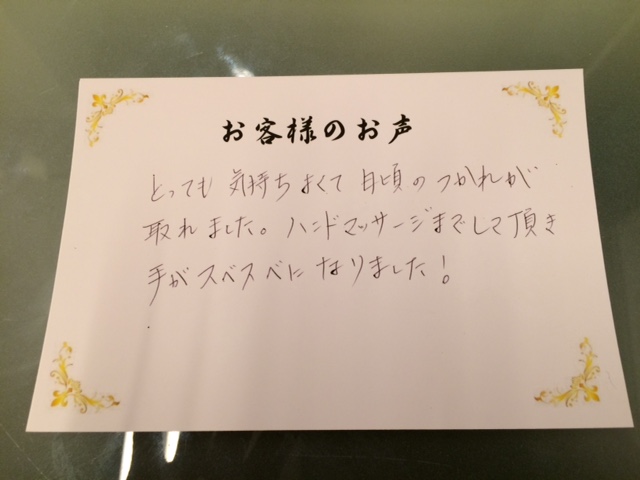 お客様のお声
とっても気持ちよくて日頃のつかれが
取れました。ハンドマッサージまでして頂き
手がスベスベになりました!